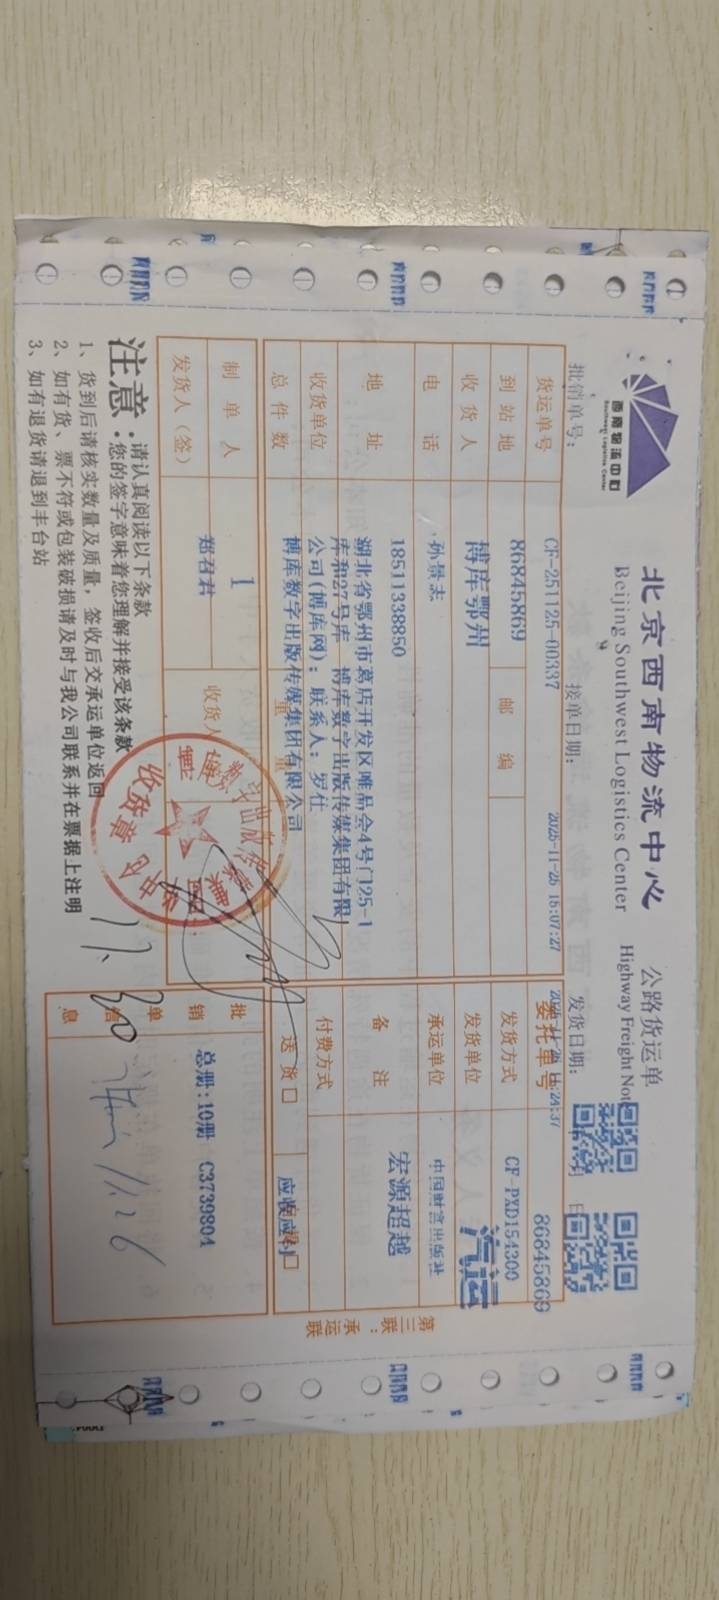 西南物流中心
Southwest Logistics Center
北京西南物流中心
Beijing Southwest Logistics Center
公路货运单
Highway Freight Not
批销单号：
接单日期：
2025-11-25 15:07:27
发货日期：
日
货运单号
CF-251125-00337
委托单号
86845869
到站地
86845869
邮编
发货方式
CF-PXD154300
汽运
收货人
博库鄂州
发货单位
中国财富出版社
电话
孙景志
承运单位
宏源超越
地址
18511338850
湖北省鄂州市葛店开发区唯品会4号门25-1
库和27号库 博库数字出版传媒集团有限
公司(博库网)；联系人：罗仕
备注
收货单位
博库数字出版传媒集团有限公司
付费方式
总件数
1
重量
送货□
应收应付□
制单人
郑君君
收货人
发货人（签）
批销单信息
总册:10册 C3739804
第三联：承运联
注意：
请认真阅读以下条款
您的签字意味着您理解并接受该条款
1、货到后请核实数量及质量，签收后交承运单位返回
2、如有货、票不符或包装破损请及时与我公司联系并在票据上注明
3、如有退货请退到丰台站
17:30
11.26